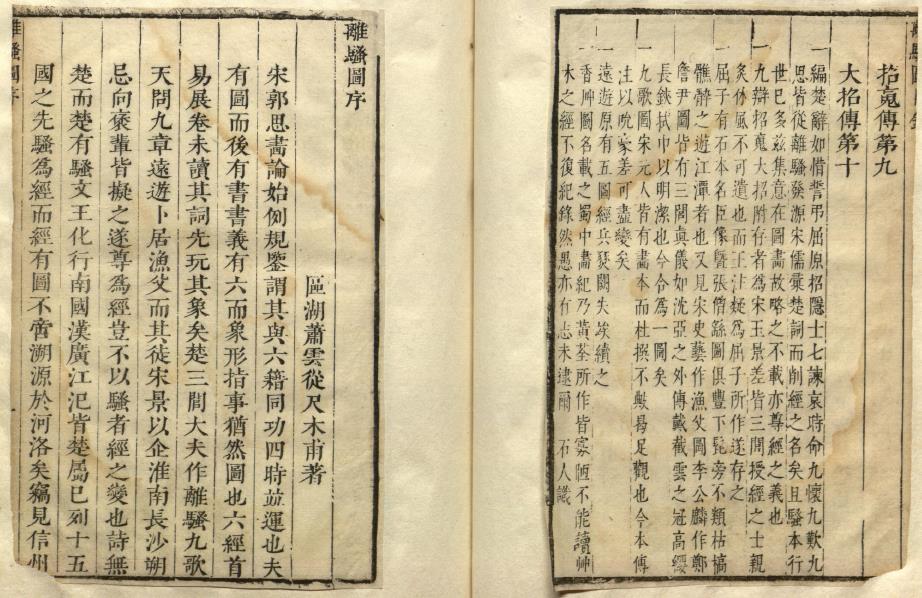 招䰟傳第九
大招傳第十
一編楚辭如惜誓弔屈原招隱士七諫哀時命九懷九歎九
思皆從離騷發源宋儒彙楚詞而削經之名矣且騷本行
世已多茲集意在圖畵故略之不載亦尊經之義也
一九辯招䰟大招附存者爲宋玉景差皆三閭授經之士親
炙休風不可遺也而王注疑爲屈子所作遂存之
一屈子有石本名臣像曁張僧繇圖俱豐下髭旁不類枯槁
憔醉之遊江潭者也又見宋史藝作漁父圖李公麟作鄭
詹尹圖皆有三閭眞儀如沈亞之外傳載截雲之冠高纓
長鋏拭巾以明潔也今合爲一圖矣
一九歌圖宋元人皆有畵本而杜撰不典曷足觀也今本傳
注以吮毫差可盡變矣
一遠遊原有五圖經兵燹闕失竢續之
一香艸圖名載之蜀中畵紀乃黃荃所作皆寡陋不能讀艸
木之經不復紀錄然愚亦有志未逮爾 石人識
離騷圖序
區湖蕭雲從尺木甫著
宋郭思畵論始例規鑒謂其與六籍同功四時並運也夫
有圖而後有書書義有六而象形指事猶然圖也六經首
易展卷未讀其詞先玩其象矣楚三閭大夫作離騷九歌
天問九章遠遊卜居漁父而其徒宋景以企淮南長沙朔
忌向褒輩皆擬之遂尊爲經豈不以騷者經之變也詩無
楚而楚有騷文王化行南國漢廣江汜皆楚屬已列十五
國之先騷爲經而經有圖不啻溯源於河洛矣竊見信州
離騷圖序